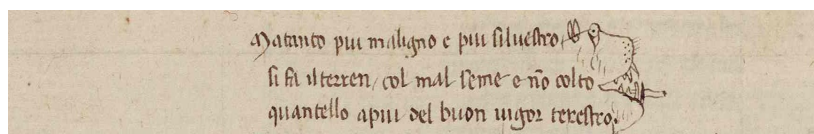 Matanto piu maligno e piu siluestro
si fa il terren / col mal seme e nõ colto
quantello apiu del buon uigor terestro.